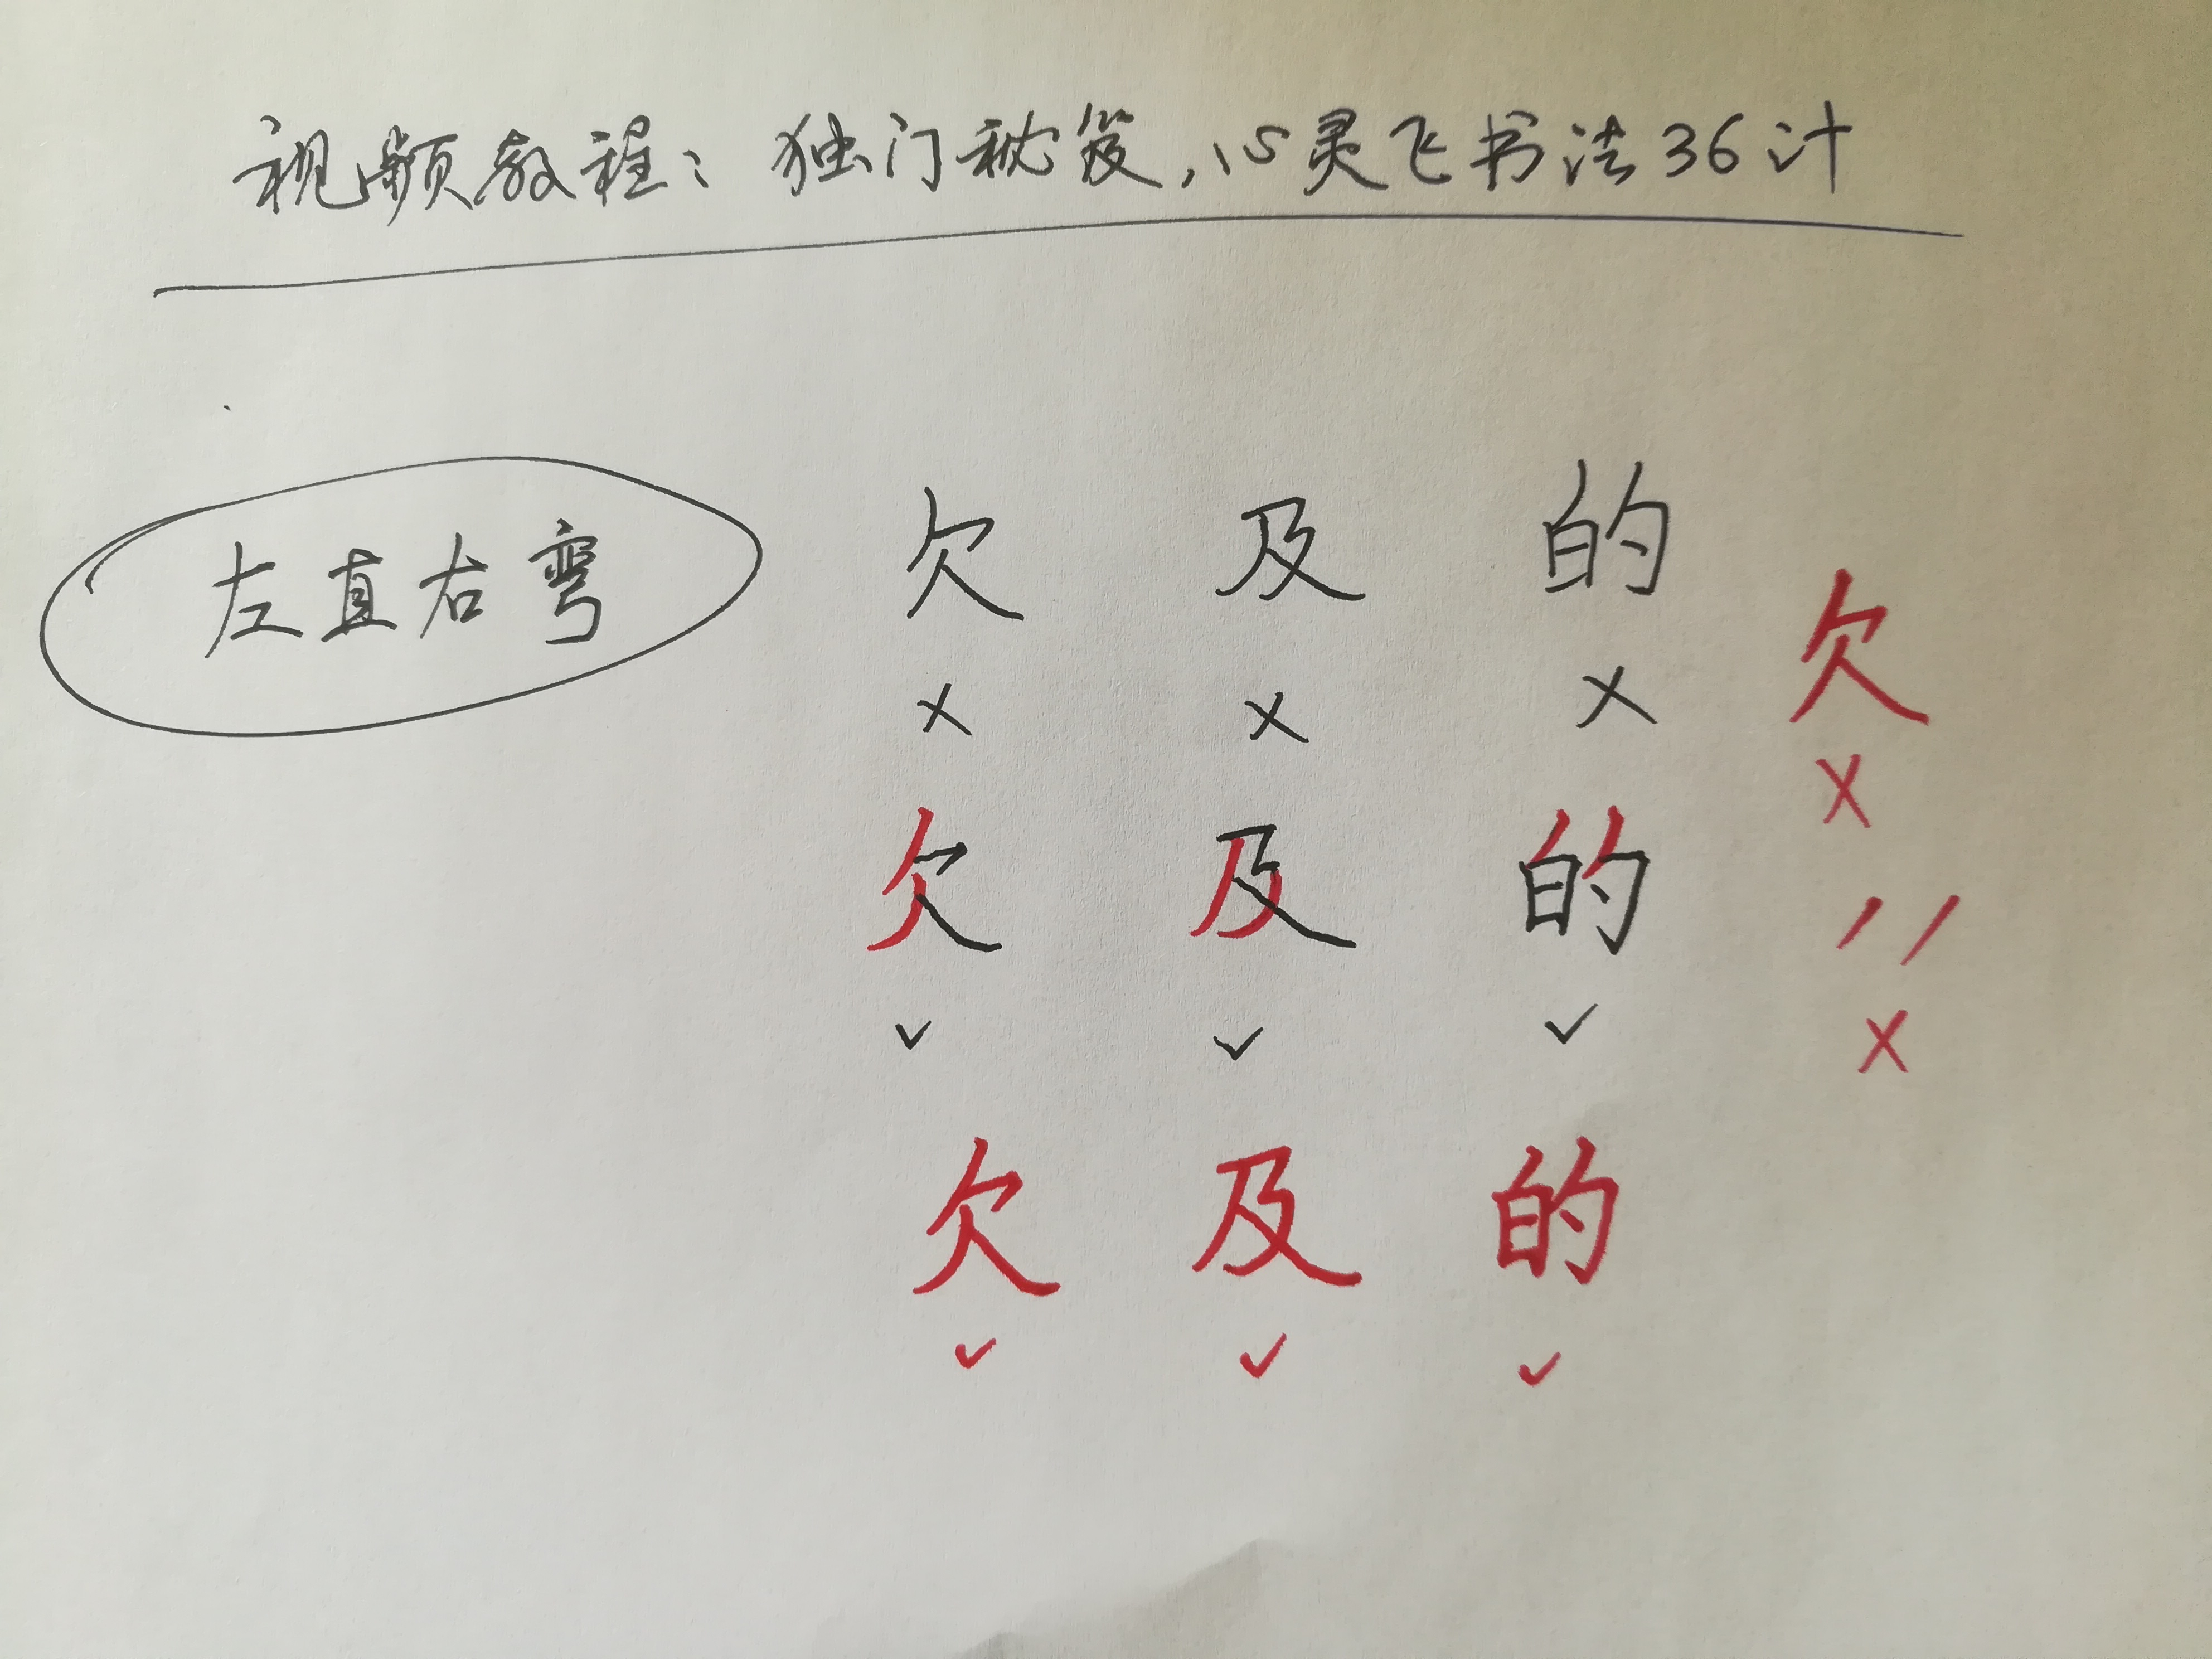 视频教程：独门秘笈，心灵飞书法36计
左直右弯
欠 及 的
欠
× × ×
×
欠 及 的
✓ ✓ ✓
×
欠 及 的
✓ ✓ ✓